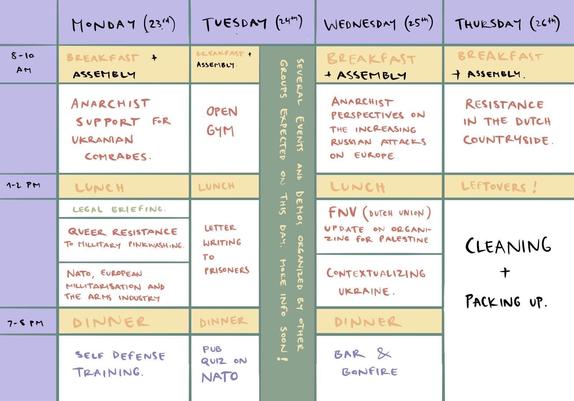 MONDAY (23rd)
TUESDAY (24th)
WEDNESDAY (25th)
THURSDAY (26th)
8-10
AM
BREAKFAST +
ASSEMBLY
BREAKFAST +
ASSEMBLY.
BREAKFAST
+ ASSEMBLY
BREAKFAST
+ ASSEMBLY.
ANARCHIST
SUPPORT FOR
UKRANIAN
COMRADES.
OPEN
GYM
SEVERAL EVENTS AND DEMOS ORGANIZED BY OTHER
GROUPS EXPECTED ON THIS DAY. MORE INFO SOON!
ANARCHIST
PERSPECTIVES ON
THE INCREASING
RUSSIAN ATTACKS
ON EUROPE
RESISTANCE
IN THE DUTCH
COUNTRYSIDE.
1-2 PM
LUNCH
LUNCH
LUNCH
LEFTOVERS!
LEGAL BRIEFING.
QUEER RESISTANCE
TO MILLITARY PINKWASHING.
NATO, EUROPEAN
MILITARISATION AND
THE ARMS INDUSTRY
LETTER
WRITING
TO
PRISONERS
FNV (DUTCH UNION)
UPDATE ON ORGANI-
ZING FOR PALESTINE
CONTEXTUALIZING
UKRAINE.
CLEANING
+
PACKING UP.
7-8 PM
DINNER
DINNER
DINNER
SELF DEFENSE
TRAINING.
PUB
QUIZ ON
NATO
BAR &
BONFIRE